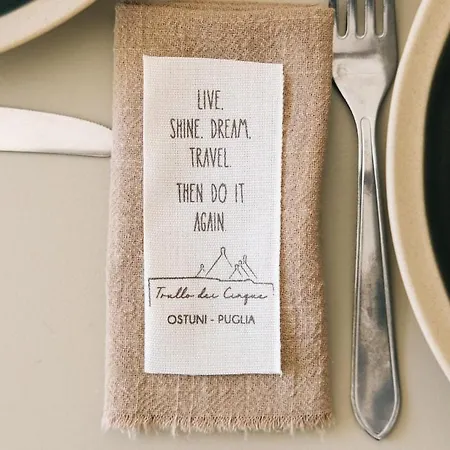 LIVE.
SHINE. DREAM.
TRAVEL.
THEN DO IT
AGAIN.
Trullo dei Cinque
OSTUNI - PUGLIA